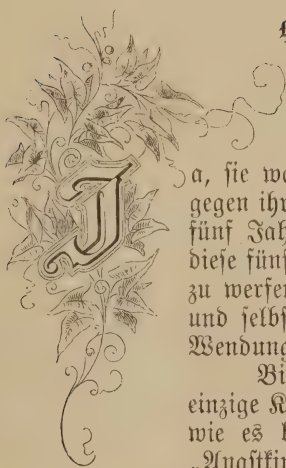 Ja, sie wa
gegen ihr
fünf Jah
diese fünf
zu werfen
und selbs
Wendung
einzige K
wie es
„Angstkin